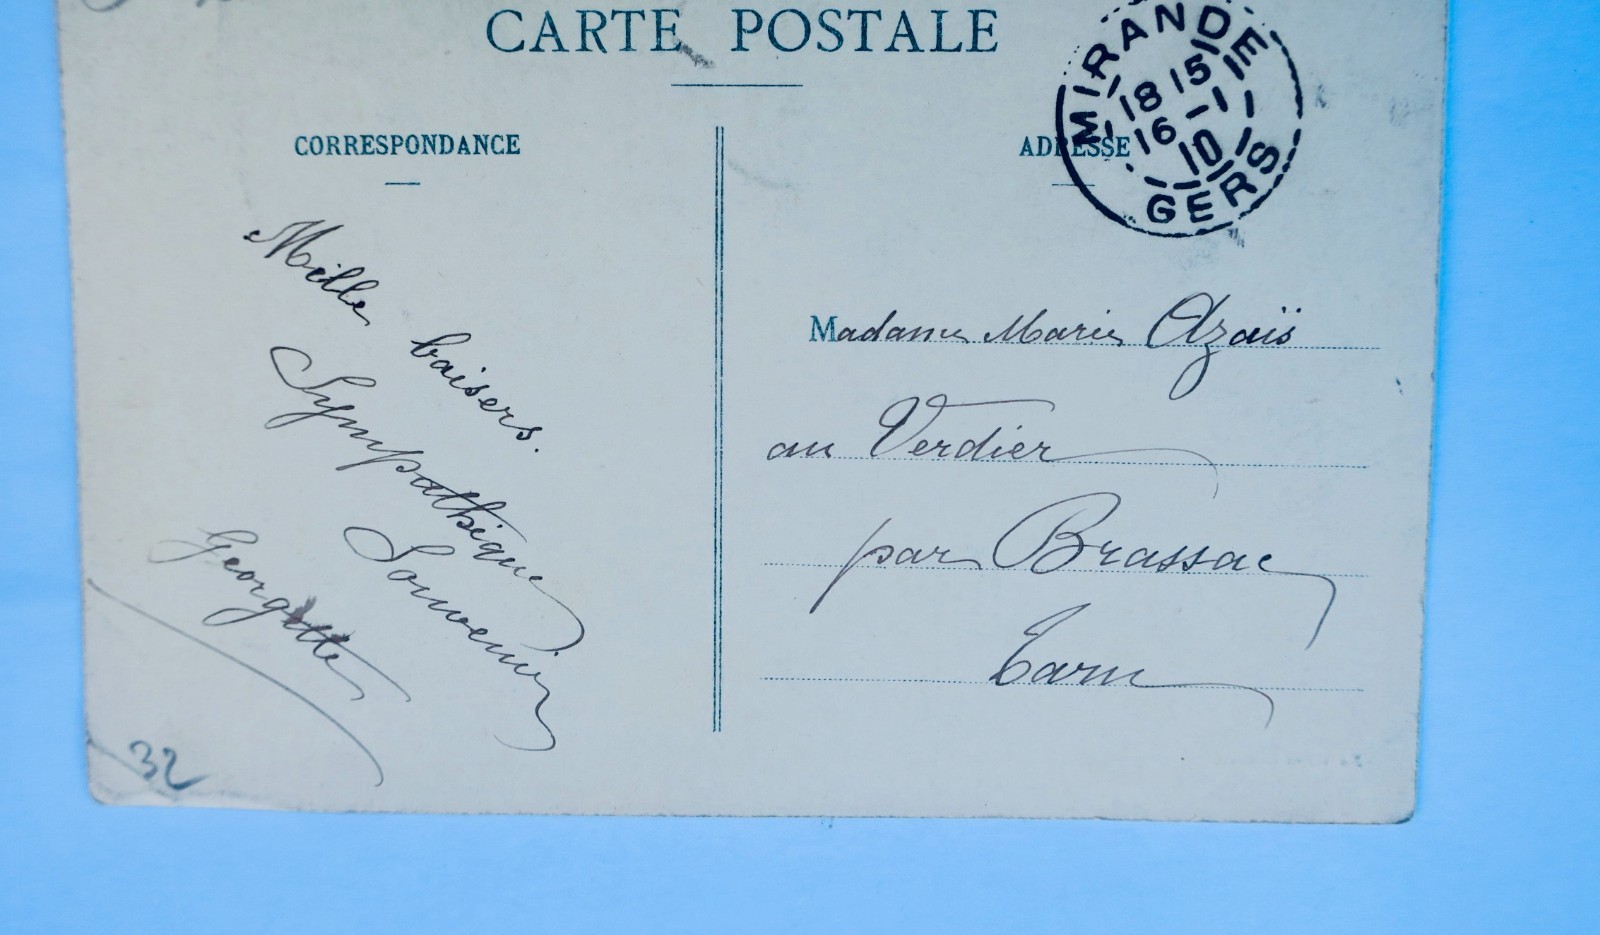 CARTE POSTALE
MIRANDE
18 15
16 -1
10
GERS
CORRESPONDANCE
ADRESSE
Mille baisers.
Sympathique
Souvenir
Georgette
32
Madame Marie Azaïs
au Verdier
par Brassac
Tarn